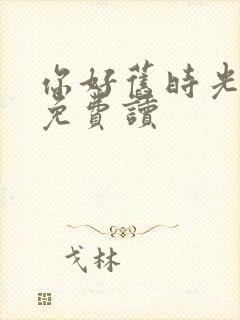 你好舊時光
免費讀
戈林